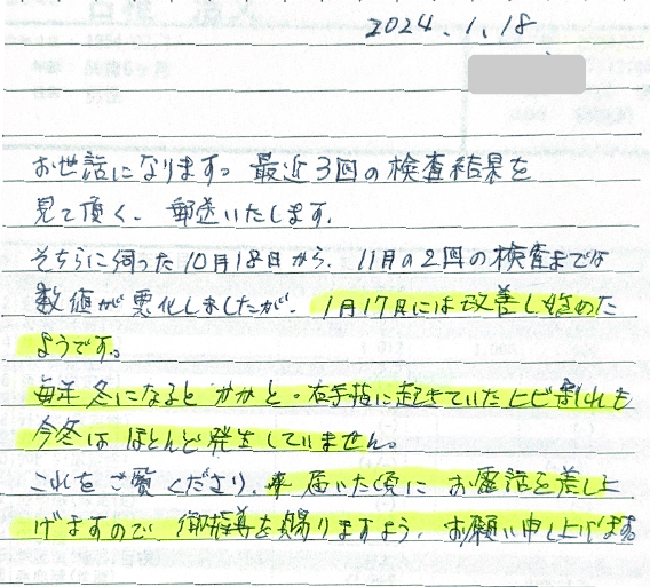 2024.1.18
お世話になります。最近3回の検査結果を
見て頂く、郵送いたします.
そちらに伺った10月18日から、11月の2回の検査までは
数値が悪化しましたが、1月17日には改善し始めた
ようです。
毎年冬になるとかかと・右手指に起きていたヒビ割れも
今冬はほとんど発生していません。
これをご覧くださり、届いた頃にお電話を差し上
げますので御指導を賜りますよう、お願い申し上げます